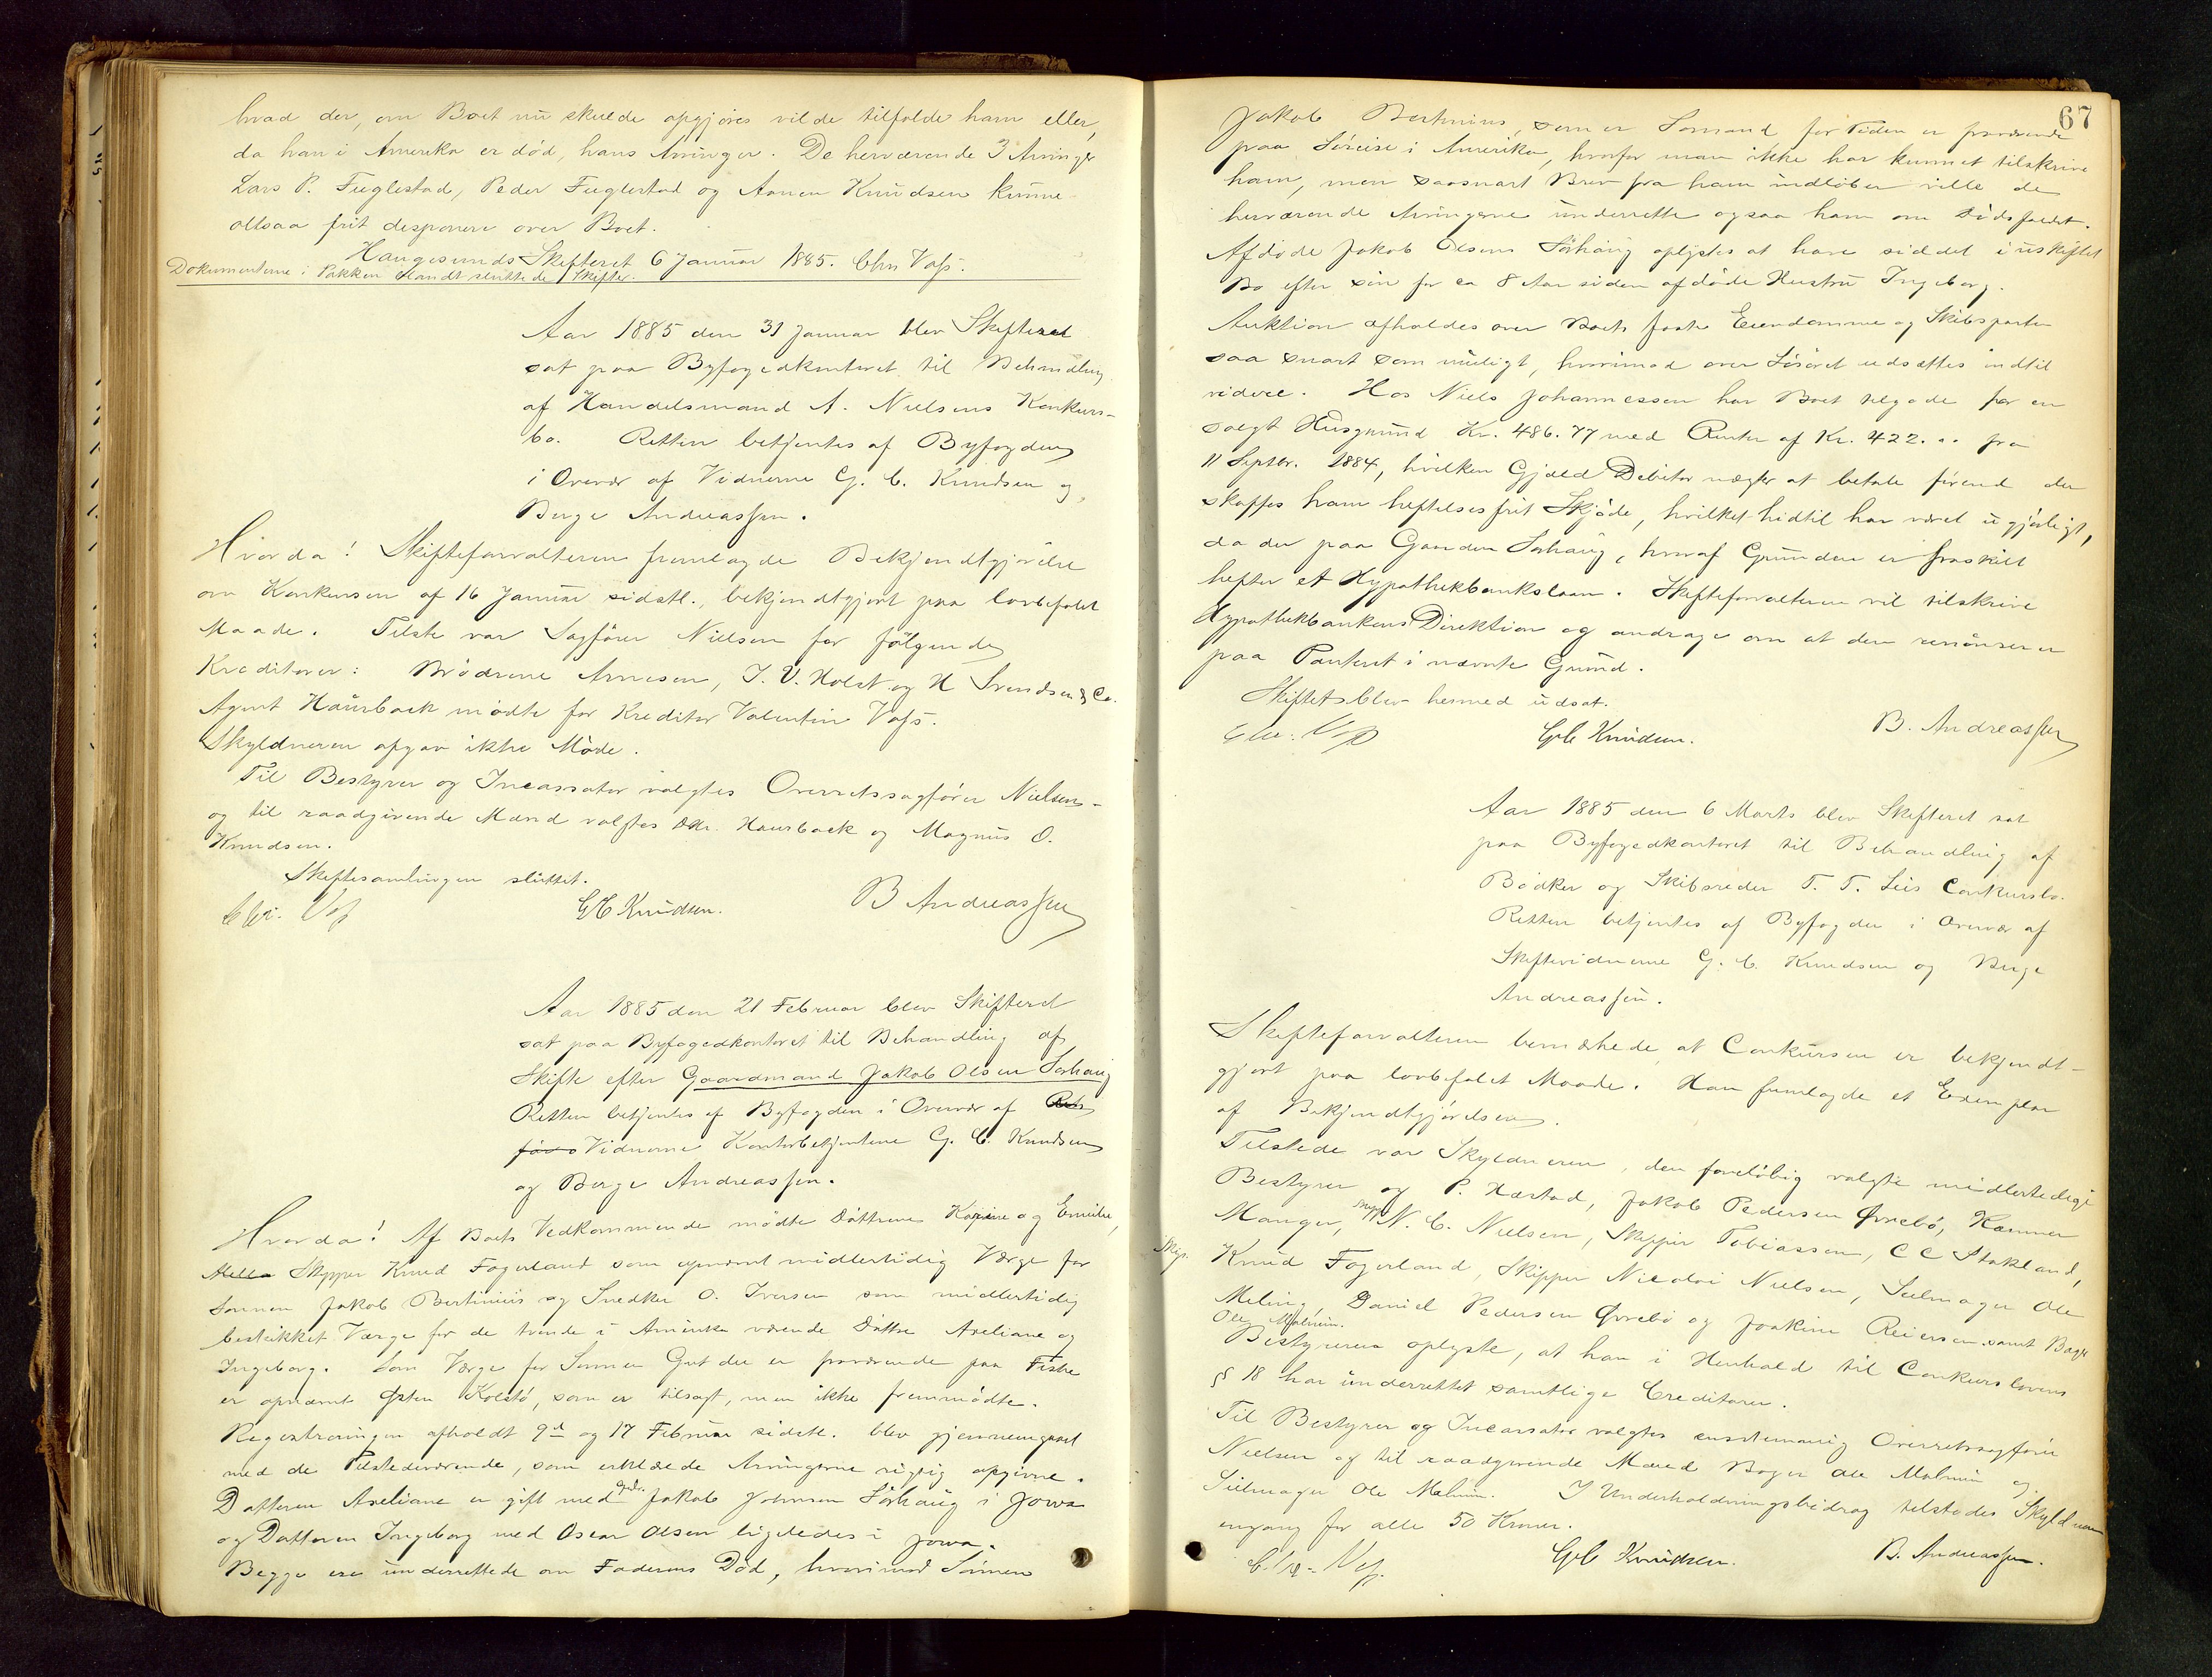 hvad der, om Boet nu skulde opgjøres vilde tilfalde ham eller,
da han i Amerika er død, hans Arvinger. De herværende 3 Arvinger
Lars P. Fuglestad, Peder Fuglestad og Knudsen kunne
altsaa frit disponere over Boet.
Haugesunds Skifteret 6 Januar 1885. Chr. Vaſs.
Dokumenterne i Pakken blandt sluttede Skifter.
Aar 1885 den 31 Januar blev Skifteret
sat paa Byfogedkontoret til Behandling
af Handelsmand A. Nielsens Konkurs-
bo. Retten betjentes af Byfogden
i Overvær af Vidnerne G. C. Knudsen og
Berge Andreasſen.
Hvorda! Skifteforvalteren fremlagde Bekjendtgjørelse
om Konkursen af 16 Januar sidstl., bekjendtgjort paa lovbefalet
Maade. Tilste var Sagfører Nielsen for følgende
Kreditorer: Brødrene Arnesen, J. V. Holst og H Svendsen & Co.
Agent Haurback mødte for Kreditor Valentin Vaſs.
Skyldneren afgav ikke Møde.
Til Bestyrer og Incassator valgtes Overretssagfører Nielsen-
og til raadgivende Mænd valgtes Hr. Haurback og Magnus O.
Knudsen.
Skiftesamlingen sluttet.
Chr. Vaſs G C Knudsen. B Andreasſen
Aar 1885 den 21 Februar blev Skifteret
sat paa Byfogedkontoret til Behandling af
Skifte efter Gaardmand Jakob Olsen Sørhaug
Retten betjentes af Byfogden i Overvær af Rets
føre Vidnerne Kontorbetjentene G. C. Knudsen
og Berge Andreasſen.
Hvorda! Af Boets Vedkommende mødte Døttrene Karine og Emilie,
Skipper Knud Fagerland som opnævnt midlertidig Værge for
Sønnen Jakob Bertinius og Snedker O. Iversen som midlertidig
beskikket Værge for de tvende i Amerika værende Døttre Axeliane og
Ingeborg. Som Værge for Sønnen Gut der er fraværende paa Fiske
er opnævnt Østen Kolstø, som er tilsagt, men ikke fremmødte.
Registreringen afholdt 9de og 17 Februar sidstl. blev gjennemgaaet
med de Tilstedeværende, som erklærede Arvingerne rigtig opgivne.
Datteren Axeliane er gift med Jakob Johnsen Sørhaug i Jowa
og Datteren Ingeborg med Oscar Olsen ligeledes i Jowa.
Begge ere underrettede om Faderens Død, hvorimod Sønnen
67
Jakob Bertinius, som er Sømand for Tiden er fraværende
paa Søreise i Amerika, hvorfor man ikke har kunnet tilskrive
ham, men saasnart Brev fra ham indløber ville de
herværende Arvingerne underrette ogsaa ham om Dødsfaldet.
Afdøde Jakob Olsens Sørhaug oplystes at have siddet i uskiftet
Bo efter sin for ca 8 Aar siden afdøde Hustru Ingeborg.
Auktion afholdes over Boets faste Eiendomme og Skibsparter
saa snart som muligt, hvorimod over Løsøret udsættes indtil
videre. Hos Niels Johannessen har Boet tilgode for en
solgt Husgrund Kr. 486.77 med Renter af Kr. 422. " fra
11 Septbr. 1884, hvilken Gjæld Debitor nægter at betale førend der
skaffes ham heftelsesfrit Skjøde, hvilket hidtil har været ugjørligt,
da der paa Gaarden Sørhaug, hvoraf Grunden er fraskilt
hefter et Hypothekbankslaan. Skifteforvalteren vil tilskrive
Hypothekbankens Direktion og andrage om at den renuncerer
paa Panteret i nævnte Grund.
Skiftet blev hermed udsat.
Chr. Vaſs GC Knudsen. B. Andreasſen
Aar 1885 den 6 Marts blev Skifteret sat
paa Byfogedkontoret til Behandling af
Bødker og Skibsreder T. T. Leis Conkursbo.
Retten betjentes af Byfogden i Overvær af
Skiftevidnerne G. C. Knudsen og Berge
Andreasſen.
Skifteforvalteren bemærkede at Conkursen er bekjendt-
gjort paa lovbefalet Maade. Han fremlagde et Exemplar
af Bekjendtgjørelsen.
Tilstede var Skyldneren, den foreløbig valgte midlertidige
Bestyrer og P. Hæstad, Jakob Pedersen Øvrebø, Kæmner
Manger, N. C. Nielsen, Skipper Tobiassen, C C Stakland,
Skip. Knud Fagerland, Skipper Nicolai Nielsen, Seilmager Ole
Meling, Daniel Pedersen Øvrebø og Joakim Reiersen samt Bager
Ole Malmin.
Bestyreren oplyste, at han i Henhold til Conkurslovens
§ 18 har underrettet samtlige Creditorer.
Til Bestyrer og Incassator valgtes enstemmig Overretssagfører
Nielsen og til raadgivende Mænd Bager Ole Malmin og
Seilmager Ole Malmin. I Underholdningsbidrag tilstodes Skyldneren
engang for alle 50 Kroner.
Chr. Vaſs. GC Knudsen. B. Andreasſen.